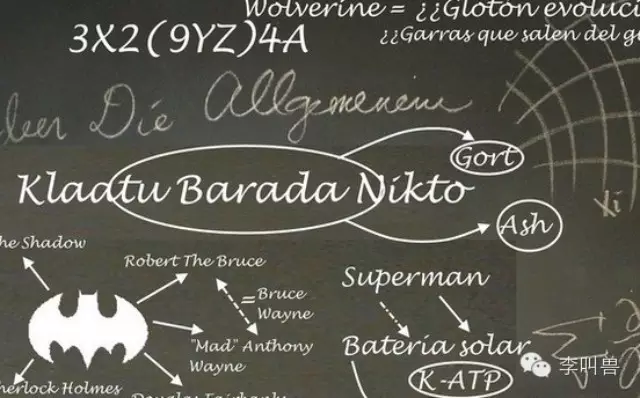 Wolverine = ¿¿Glotón evoluci
3X2(9YZ)4A
¿¿Garras que salen del g
Die Allgemeinen
Gort
Klaatu Barada Nikto
Ash
xi
he Shadow
Robert The Bruce
Superman
= Bruce
Wayne
"Mad" Anthony
Wayne
Bateria solar
K-ATP
herlock Holmes
Douglas Fairbanks
李叫兽